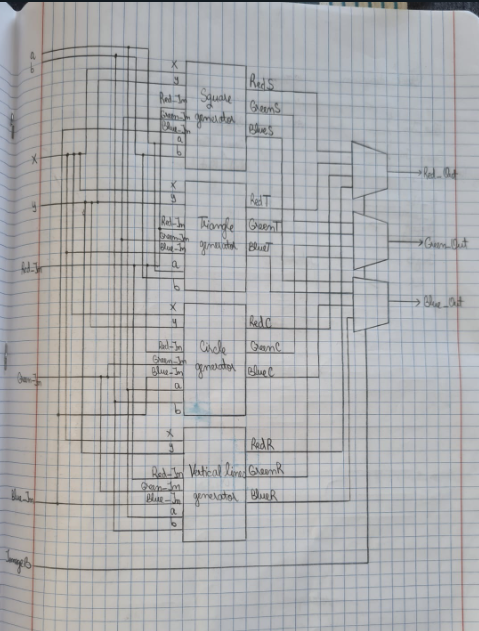 a
b
x
y
Red_In
Green_In
Blue_In
x
y
Red_In
Green_In
Blue_In
a
b
Square
generator
RedS
GreenS
BlueS
x
y
Red_In
Green_In
Blue_In
a
b
Triangle
generator
RedT
GreenT
BlueT
x
y
Red_In
Green_In
Blue_In
a
b
Circle
generator
RedC
GreenC
BlueC
x
y
Red_In
Green_In
Blue_In
a
b
Vertical lines
generator
RedR
GreenR
BlueR
Red_Out
Green_Out
Blue_Out